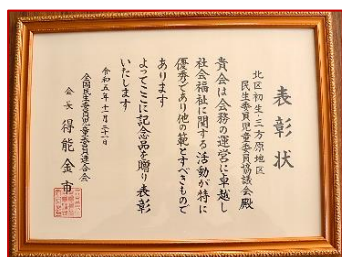 表彰状
北区初生・三方原地区
民生委員児童委員協議会殿
貴会は会務の運営に卓越し
社会福祉に関する活動が特に
優秀であり他の範とすべきもので
あります
よってここに記念品を贈り表彰
いたします
令和五年十一月二十一日
全国民生委員児童委員連合会
会長 得能金市